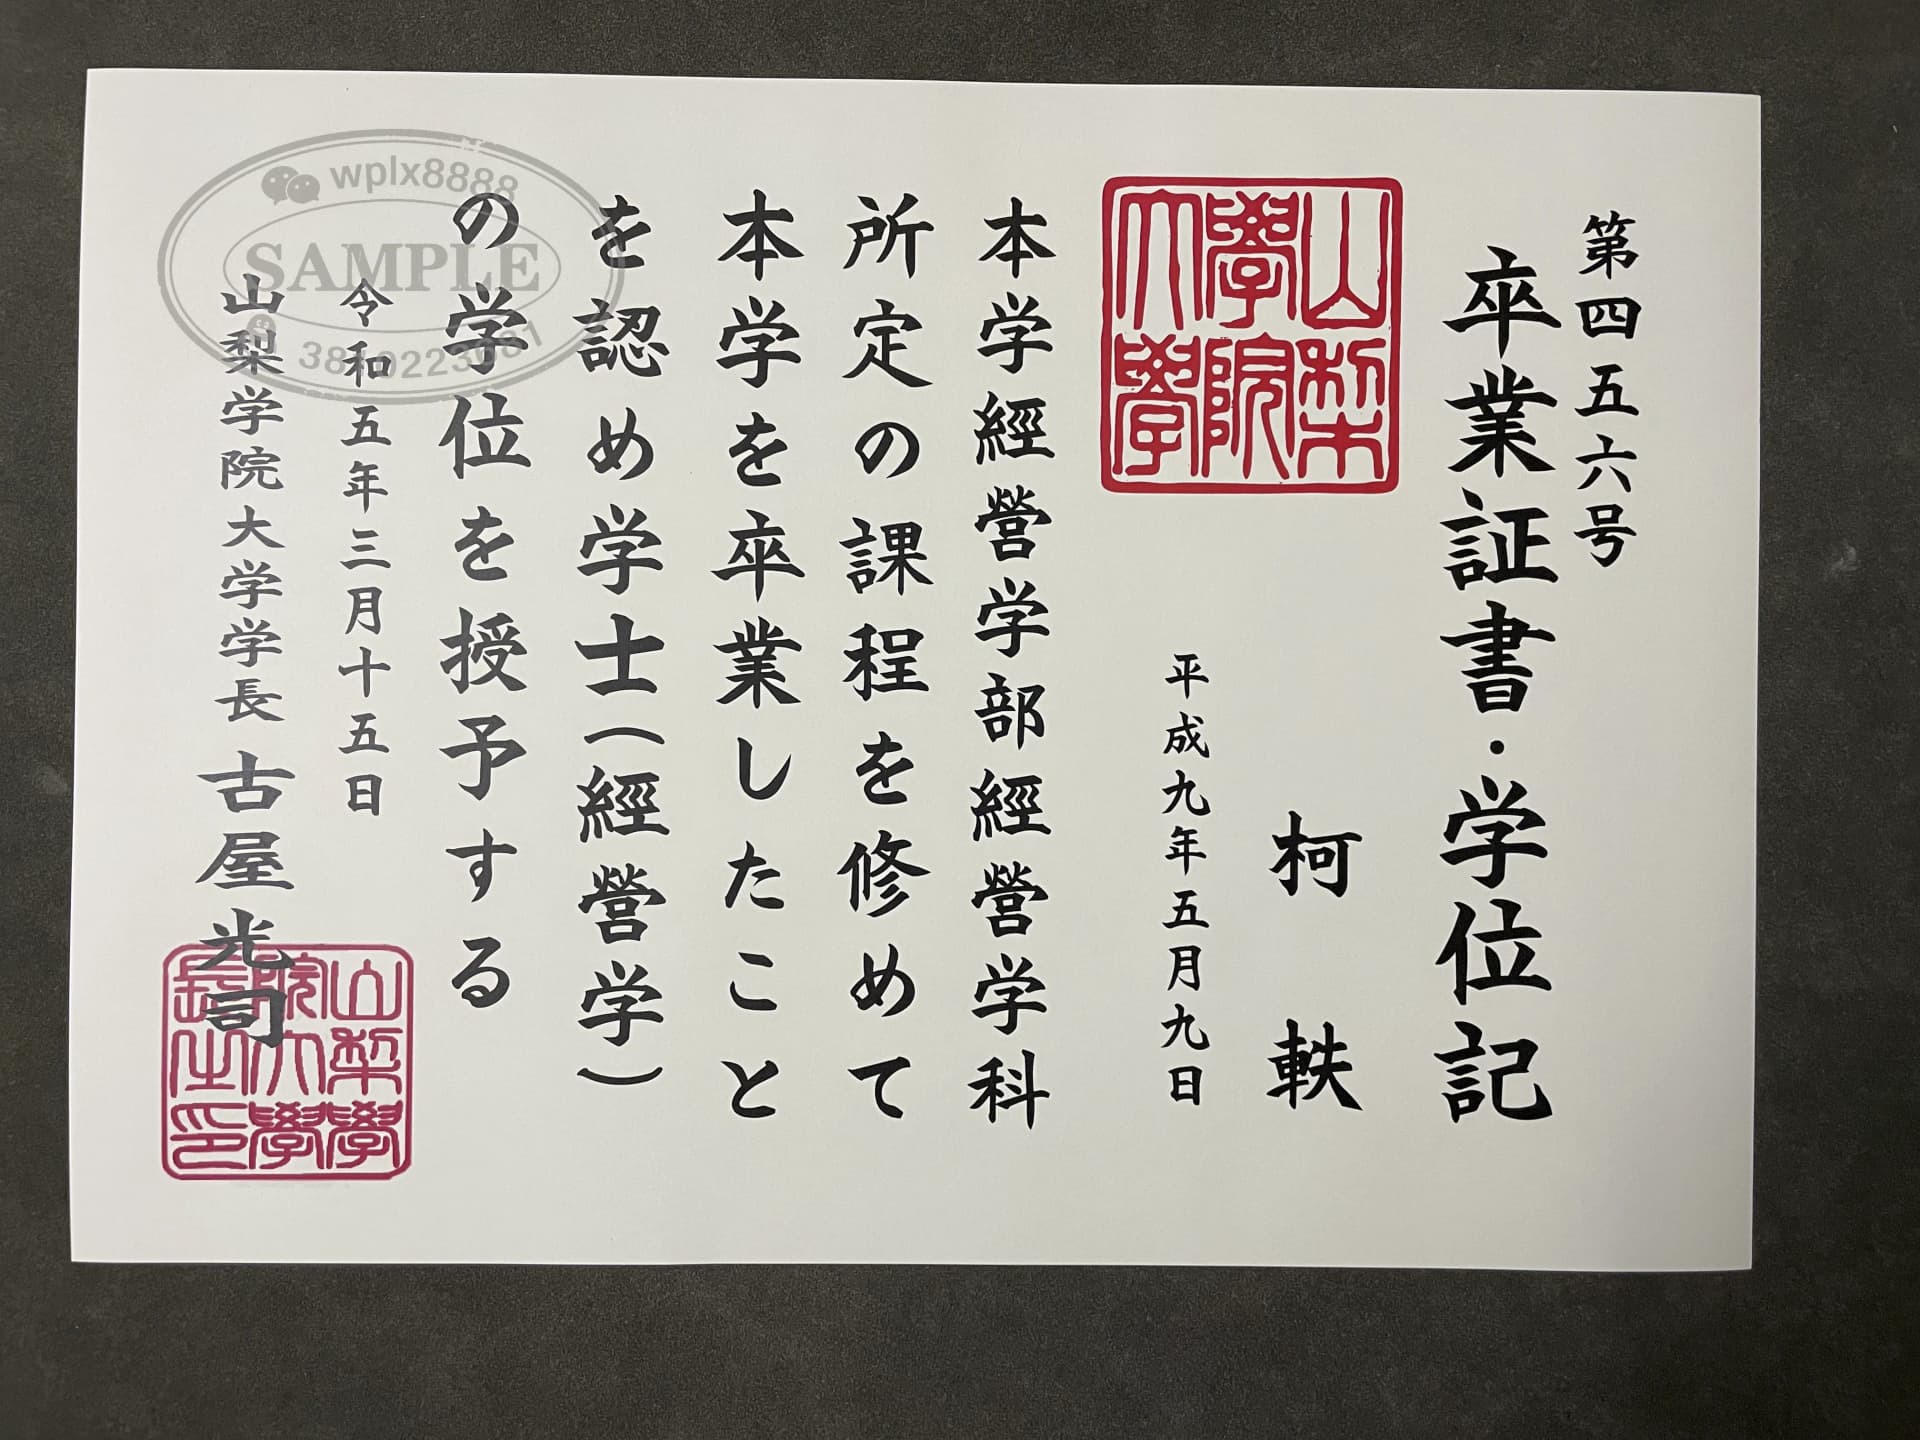 第四五六号
卒業証書・学位記
柯 軼
平成九年五月九日
山梨
學院
大學
本学經營学部經營学科
所定の課程を修めて
本学を卒業したこと
を認め学士(經營学)
の学位を授予する
令和五年三月十五日
山梨学院大学学長 古屋光司
山梨學
院大學
長之印
wplx8888
SAMPLE